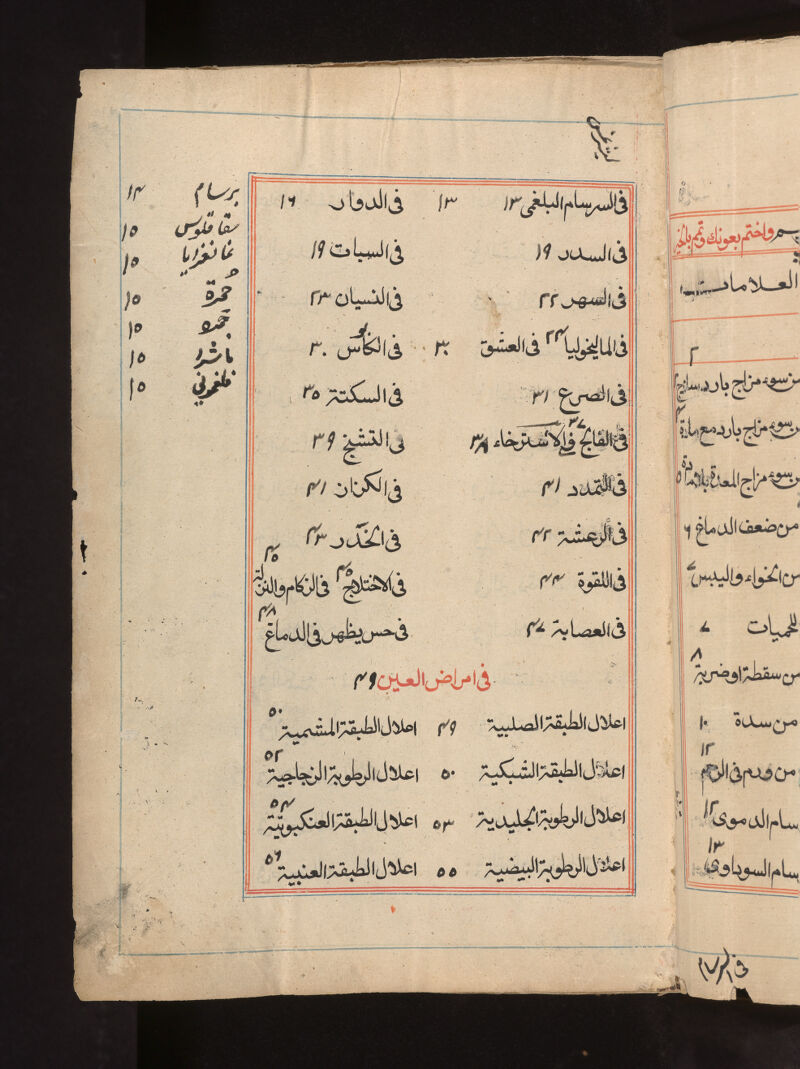 في السرسام البلغمي ١٣ ١٣ في الدوار ١٦
في السدر ١٩ في السبات ١٩
في السهر ٢٢ في النسيان ٢٣
في الماليخوليا ٢٤ في العشق ٣٠ في الكابوس ٣٠
في الصرع ٣١ في السكتة ٣٥
في الفالج ٣٧ في الاسترخاء ٣٨ في التشنج ٣٩
في التمدد ٤١ في الكزاز ٤١
في الرعشة ٤٢ في الخدر ٤٣
في اللقوة ٤٤ في الاختلاج ٤٥ في الزكام والنزلة ٤٥
في العصابة ٤٧ في حس يظهر في الدماغ ٤٨
في امراض العين ٤٩
اعلال الطبقة الصلبية ٤٩ اعلال الطبقة المشمية ٥٠
اعلال الطبقة الشبكية ٥٠ اعلال الرطوبة الزجاجية ٥٢
اعلال الرطوبة الجليدية ٥٣ اعلال الطبقة العنكبوتية ٥٤
اعلال الرطوبة البيضية ٥٥ اعلال الطبقة العنبية ٥٦
برسام ١٤
سقاقلوس ١٥
غانغرايا ١٥
حمرة ١٥
جمره ١٥
ماشرا ١٥
فلغموني ١٥
واختم بعونك وتمم بالخير
العلامات
٢
من سوء مزاج بارد ساذج
سوء مزاج بارد مع مادة
سوء مزاج المعدة بلا مادة ٥
من ضعف الدماغ ٦
من الخواء واليبس
للحميات ٧
من سقطة او ضربة ٨
من سدة ١٠
من ورم في الرحم ١٢
سام الدموي ١٢
سام السوداوي ١٣
في السرسام